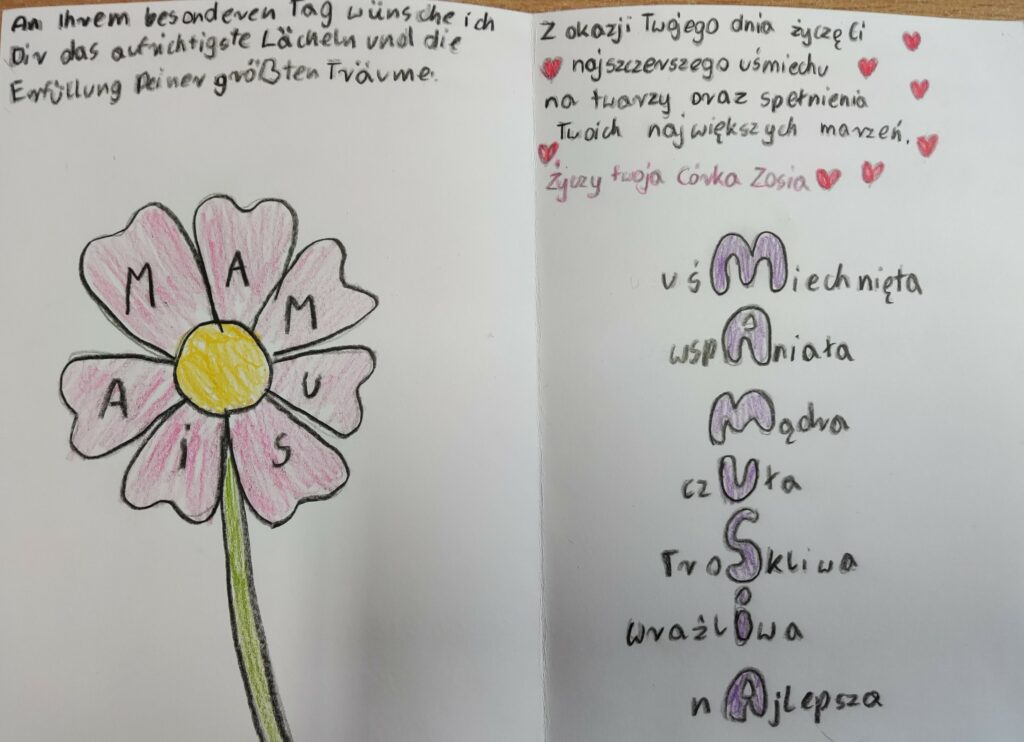 An Ihrem besonderen Tag wünsche ich
Dir das aufrichtigste Lächeln und die
Erfüllung Deiner größten Träume.
M A M U S i A
Z okazji Twojego dnia życzę Ci
najszczerszego uśmiechu
na twarzy oraz spełnienia
Twoich największych marzeń.
Życzy twoja Córka Zosia
uśMiechnięta
wspAniała
Mądra
czUła
TroSkliwa
wrażliwa
nAjlepsza